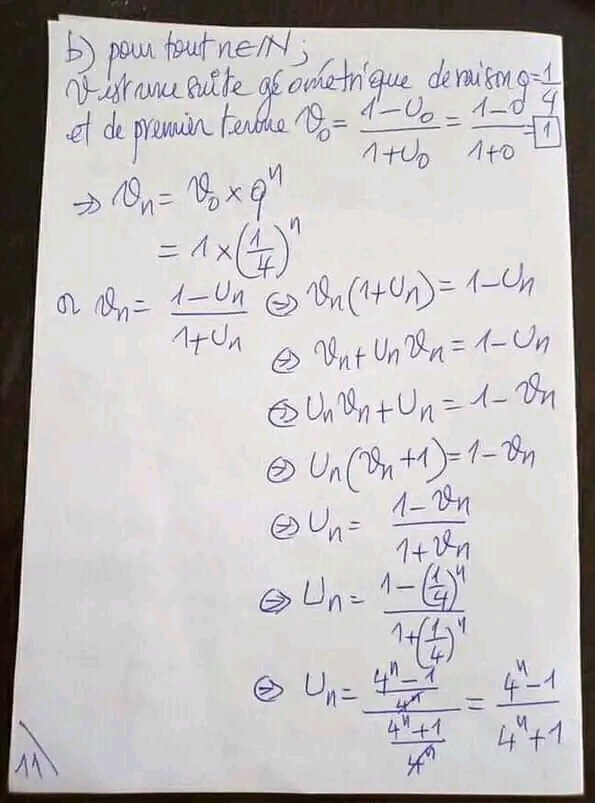 b) pour tout n∈ℕ ;
V est une suite géométrique de raison q=1/4
et de premier terme V₀ = (1-U₀)/(1+U₀) = (1-0)/(1+0) = 1
⇒ Vₙ = V₀ × qⁿ
= 1 × (1/4)ⁿ
or Vₙ = (1-Uₙ)/(1+Uₙ) ⇔ Vₙ(1+Uₙ) = 1-Uₙ
⇔ Vₙ + UₙVₙ = 1-Uₙ
⇔ UₙVₙ + Uₙ = 1-Vₙ
⇔ Uₙ(Vₙ+1) = 1-Vₙ
⇔ Uₙ = (1-Vₙ)/(1+Vₙ)
⇔ Uₙ = (1-(1/4)ⁿ)/(1+(1/4)ⁿ)
⇔ Uₙ = ((4ⁿ-1)/4ⁿ)/((4ⁿ+1)/4ⁿ) = (4ⁿ-1)/(4ⁿ+1)
11